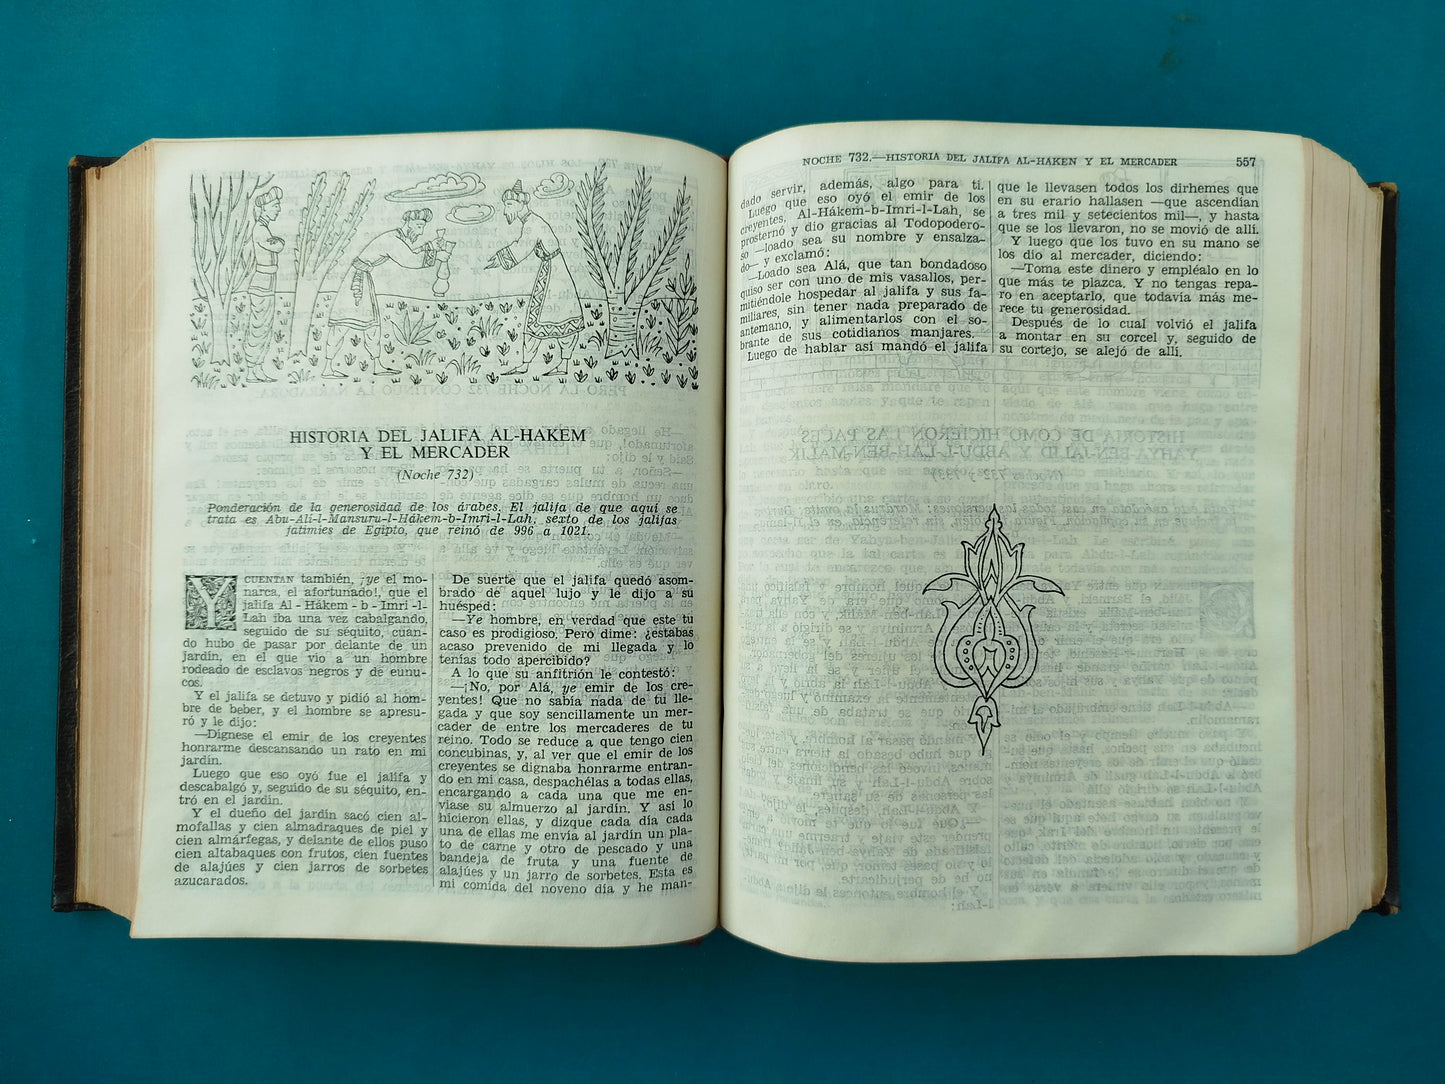 HISTORIA DEL JALIFA AL-HAKEM
Y EL MERCADER
(Noche 732)
Ponderación de la generosidad de los árabes. El jalifa de que aquí se
trata es Abu-Ali-l-Mansuru-l-Hákem-b-Imri-l-Lah, sexto de los jalifas
fatimíes de Egipto, que reinó de 996 a 1021.
Y CUENTAN también, ¡ye el mo-
narca, el afortunado!, que el
jalifa Al-Hákem-b-Imri-l-
Lah iba una vez cabalgando,
seguido de su séquito, cuan-
do hubo de pasar por delante de un
jardín, en el que vio a un hombre
rodeado de esclavos negros y de eunu-
cos.
Y el jalifa se detuvo y pidió al hom-
bre de beber, y el hombre se apresu-
ró y le dijo:
—Dígnese el emir de los creyentes
honrarme descansando un rato en mi
jardín.
Luego que eso oyó fue el jalifa y
descabalgó y, seguido de su séquito, en-
tró en el jardín.
Y el dueño del jardín sacó cien al-
mofallas y cien almadraques de piel y
cien almárfegas, y delante de ellos puso
cien altabaques con frutos, cien fuentes
de alajúes y cien jarros de sorbetes
azucarados.
De suerte que el jalifa quedó asom-
brado de aquel lujo y le dijo a su
huésped:
—Ye hombre, en verdad que este tu
caso es prodigioso. Pero dime: ¿estabas
acaso prevenido de mi llegada y lo
tenías todo apercibido?
A lo que su anfitrión le contestó:
—¡No, por Alá, ye emir de los cre-
yentes! Que no sabía nada de tu lle-
gada y que soy sencillamente un mer-
cader de entre los mercaderes de tu
reino. Todo se reduce a que tengo cien
concubinas, y, al ver que el emir de los
creyentes se dignaba honrarme entran-
do en mi casa, despachélas a todas ellas,
encargando a cada una que me en-
viase su almuerzo al jardín. Y así lo
hicieron ellas, y dizque cada día cada
una de ellas me envía al jardín un pla-
to de carne y otro de pescado y una
bandeja de fruta y una fuente de
alajúes y un jarro de sorbetes. Esta es
mi comida del noveno día y he man-
NOCHE 732.—HISTORIA DEL JALIFA AL-HAKEN Y EL MERCADER 557
dado servir, además, algo para ti.
Luego que eso oyó el emir de los
creyentes, Al-Hákem-b-Imri-l-Lah, se
prosternó y dio gracias al Todopodero-
so —loado sea su nombre y ensalza-
do— y exclamó:
—Loado sea Alá, que tan bondadoso
quiso ser con uno de mis vasallos, per-
mitiéndole hospedar al jalifa y sus fa-
miliares, sin tener nada preparado de
antemano, y alimentarlos con el so-
brante de sus cotidianos manjares.
Luego de hablar así mandó el jalifa
que le llevasen todos los dirhemes que
en su erario hallasen —que ascendían
a tres mil y setecientos mil—, y hasta
que se los llevaron, no se movió de allí.
Y luego que los tuvo en su mano se
los dio al mercader, diciendo:
—Toma este dinero y empléalo en lo
que más te plazca. Y no tengas repa-
ro en aceptarlo, que todavía más me-
rece tu generosidad.
Después de lo cual volvió el jalifa
a montar en su corcel y, seguido de
su cortejo, se alejó de allí.